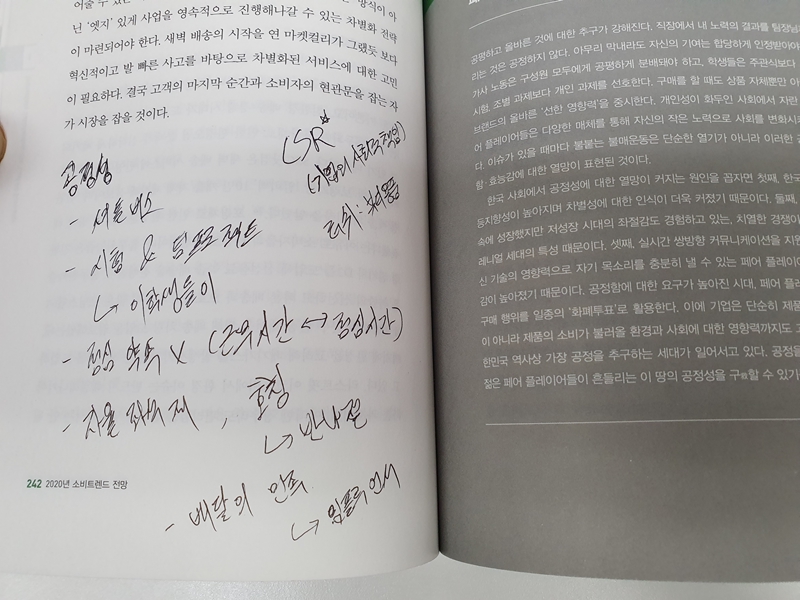 닌 '엣지' 있게 사업을 영속적으로 진행해나갈 수 있는 차별화 전략
이 마련되어야 한다. 새벽 배송의 시작을 연 마켓컬리가 그랬듯 보다
혁신적이고 발 빠른 사고를 바탕으로 차별화된 서비스에 대한 고민
이 필요하다. 결국 고객의 마지막 순간과 소비자의 현관문을 잡는 자
가 시장을 잡을 것이다.
CSR
(기업의 사회적 책임)
공정성
- 셔틀버스
- 시험 & 팀프로젝트
↳ 이학생들이
- 점심 약속 X (근무시간 ↔ 점심시간)
- 자율 좌석제, 호칭
↳ 반나절
- 배달의 민족
↳ 인플루언서
242 2020년 소비트렌드 전망
공평하고 올바른 것에 대한 추구가 강해진다. 직장에서 내 노력의 결과를 팀장님
리는 것은 공정하지 않다. 아무리 막내라도 자신의 기여는 합당하게 인정받아야
가사 노동은 구성원 모두에게 공평하게 분배돼야 하고, 학생들은 주관식보다
시험, 조별 과제보다 개인 과제를 선호한다. 구매를 할 때도 상품 자체뿐만 아
브랜드의 올바른 '선한 영향력'을 중시한다. 개인성이 화두인 사회에서 자란
어 플레이어들은 다양한 매체를 통해 자신의 작은 노력으로 사회를 변화시
다. 이슈가 있을 때마다 불붙는 불매운동은 단순한 열기가 아니라 이러한
함·효능감에 대한 열망이 표현된 것이다.
한국 사회에서 공정성에 대한 열망이 커지는 원인을 꼽자면 첫째, 한국
등지향성이 높아지며 차별성에 대한 인식이 더욱 커졌기 때문이다. 둘째,
속에 성장했지만 저성장 시대의 좌절감도 경험하고 있는, 치열한 경쟁이
레니얼 세대의 특성 때문이다. 셋째, 실시간 쌍방향 커뮤니케이션을 지원
신 기술의 영향력으로 자기 목소리를 충분히 낼 수 있는 페어 플레이어
감이 높아졌기 때문이다. 공정함에 대한 요구가 높아진 시대, 페어 플레
구매 행위를 일종의 '화폐투표'로 활용한다. 이에 기업은 단순히 제품
이 아니라 제품의 소비가 불러올 환경과 사회에 대한 영향력까지도
한민국 역사상 가장 공정을 추구하는 세대가 일어서고 있다. 공정을
젊은 페어 플레이어들이 흔들리는 이 땅의 공정성을 구할 수 있기